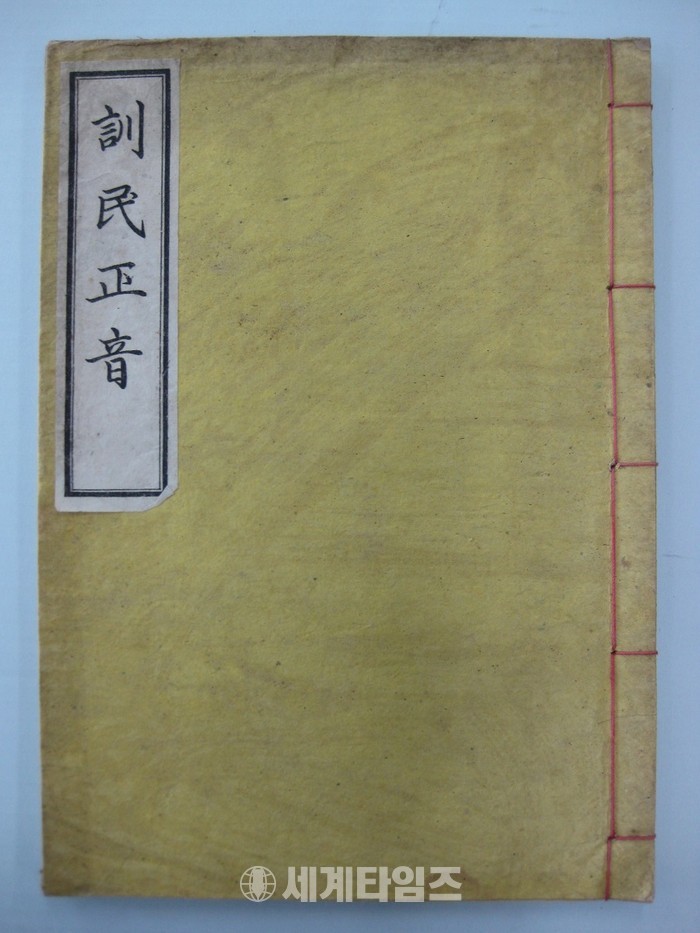 訓民正音
세계타임즈